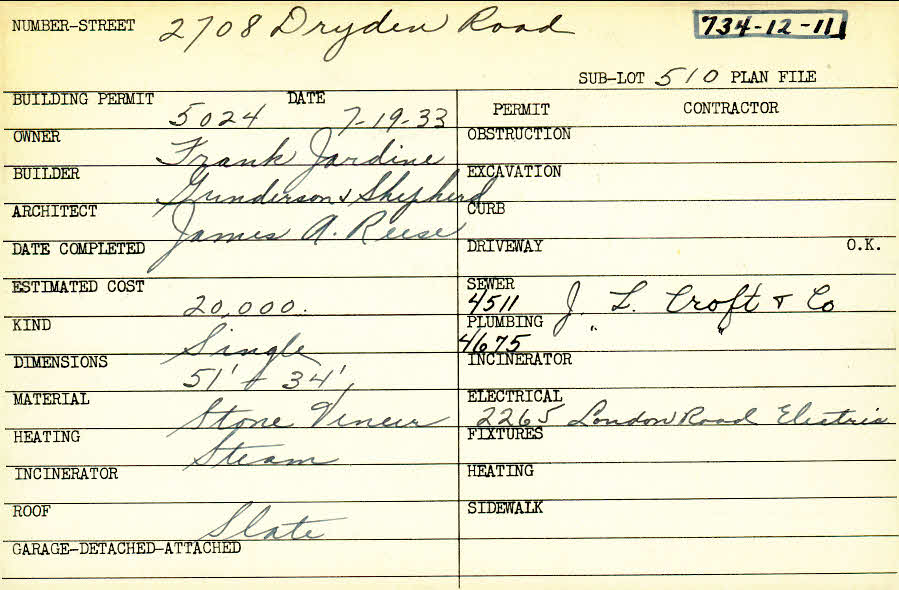 NUMBER-STREET 2708 Dryden Road 734-12-11
SUB-LOT 510 PLAN FILE
BUILDING PERMIT 5024 DATE 7-19-33
PERMIT CONTRACTOR
OWNER Frank Jardine
OBSTRUCTION
BUILDER Gunderson & Shepherd
EXCAVATION
ARCHITECT James A. Reese
CURB
DATE COMPLETED
DRIVEWAY O.K.
ESTIMATED COST 20,000.
SEWER 4511 J. L. Croft & Co
KIND Single
PLUMBING 4675 " "
DIMENSIONS 51' + 34'
INCINERATOR
MATERIAL Stone Veneer
ELECTRICAL 2265 London Road Electric
HEATING Steam
FIXTURES
INCINERATOR
HEATING
ROOF Slate
SIDEWALK
GARAGE-DETACHED-ATTACHED